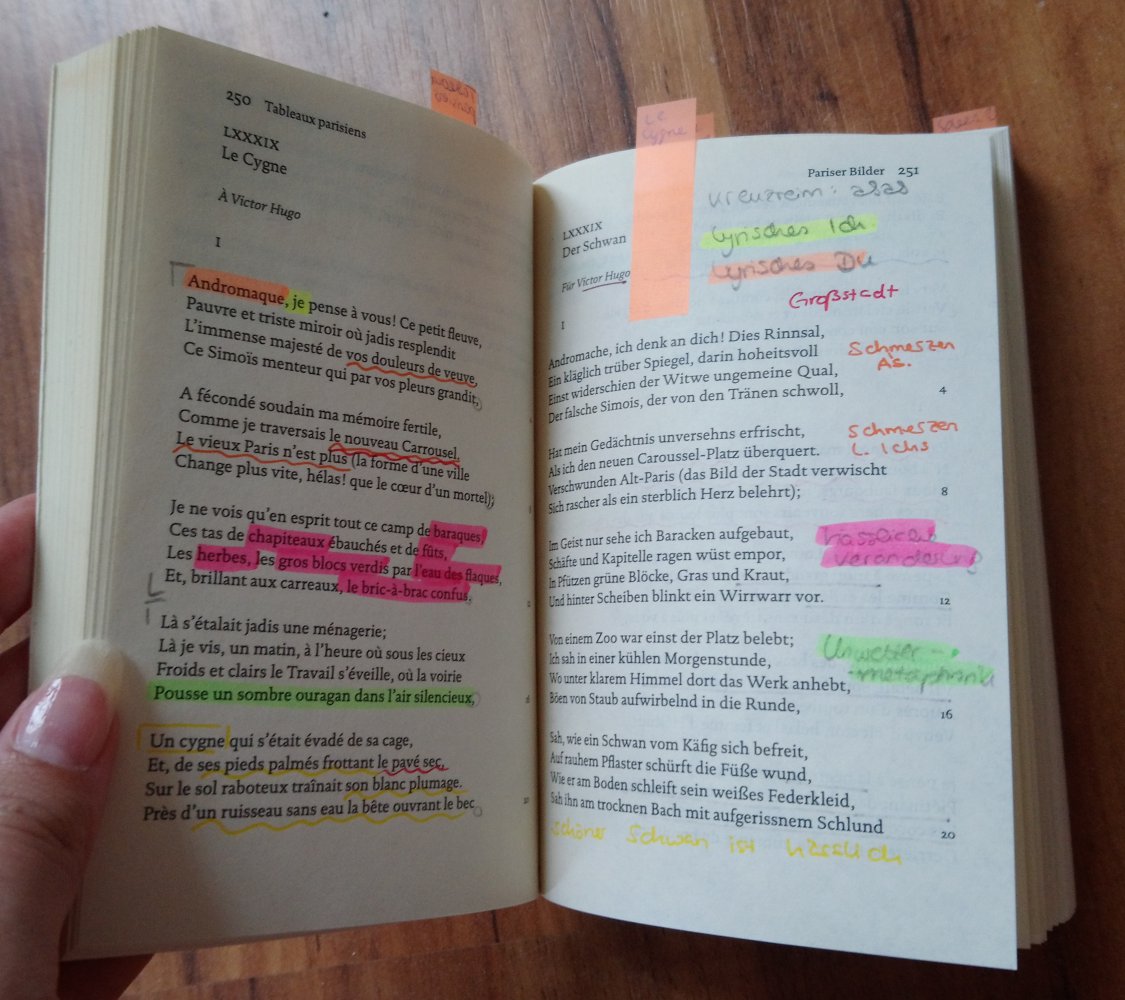 250 Tableaux parisiens
LXXXIX
Le Cygne
À Victor Hugo
I
Andromaque, je pense à vous! Ce petit fleuve,
Pauvre et triste miroir où jadis resplendit
L'immense majesté de vos douleurs de veuve,
Ce Simoïs menteur qui par vos pleurs grandit,
A fécondé soudain ma mémoire fertile,
Comme je traversais le nouveau Carrousel.
Le vieux Paris n'est plus (la forme d'une ville
Change plus vite, hélas! que le cœur d'un mortel);
Je ne vois qu'en esprit tout ce camp de baraques,
Ces tas de chapiteaux ébauchés et de fûts,
Les herbes, les gros blocs verdis par l'eau des flaques,
Et, brillant aux carreaux, le bric-à-brac confus.
12
Là s'étalait jadis une ménagerie;
Là je vis, un matin, à l'heure où sous les cieux
Froids et clairs le Travail s'éveille, où la voirie
Pousse un sombre ouragan dans l'air silencieux,
16
Un cygne qui s'était évadé de sa cage,
Et, de ses pieds palmés frottant le pavé sec,
Sur le sol raboteux traînait son blanc plumage.
Près d'un ruisseau sans eau la bête ouvrant le bec
20
Le
Cygne
Pariser Bilder 251
Kreuzreim: abab
lyrisches Ich
lyrisches Du
Großstadt
LXXXIX
Der Schwan
Für Victor Hugo
I
Andromache, ich denk an dich! Dies Rinnsal,
Ein kläglich trüber Spiegel, darin hoheitsvoll
Einst widerschien der Witwe ungemeine Qual,
Der falsche Simois, der von den Tränen schwoll,
4
Schmerzen
As.
Hat mein Gedächtnis unversehns erfrischt,
Als ich den neuen Caroussel-Platz überquert.
Verschwunden Alt-Paris (das Bild der Stadt verwischt
Sich rascher als ein sterblich Herz belehrt);
8
Schmerzen
L. Ichs
Im Geist nur sehe ich Baracken aufgebaut,
Schäfte und Kapitelle ragen wüst empor,
In Pfützen grüne Blöcke, Gras und Kraut,
Und hinter Scheiben blinkt ein Wirrwarr vor.
12
Von einem Zoo war einst der Platz belebt;
Ich sah in einer kühlen Morgenstunde,
Wo unter klarem Himmel dort das Werk anhebt,
Böen von Staub aufwirbelnd in die Runde,
16
Unwetter-
metaphorik
Sah, wie ein Schwan vom Käfig sich befreit,
Auf rauhem Pflaster schürft die Füße wund,
Wie er am Boden schleift sein weißes Federkleid,
Sah ihn am trocknen Bach mit aufgerissnem Schlund
20
schöner Schwan ist hässlich